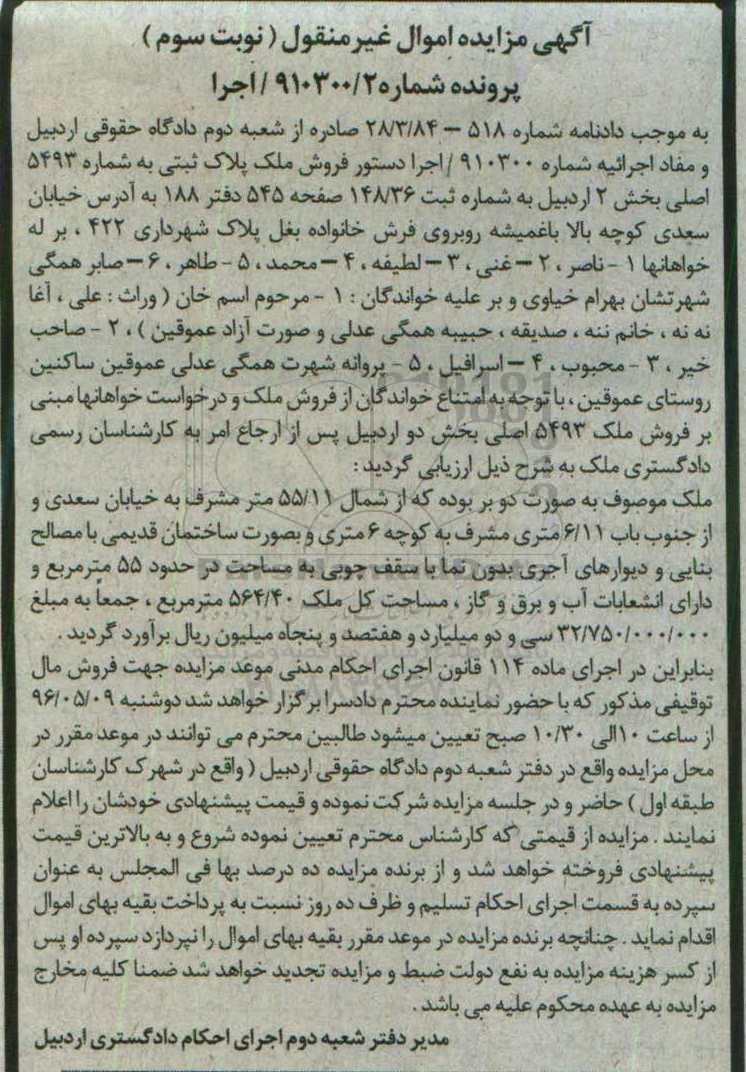 آگهی مزایده اموال غیرمنقول ( نوبت سوم )
پرونده شماره ۹۱۰۳۰۰/۲ / اجرا
به موجب دادنامه شماره ۵۱۸ – ۲۸/۳/۸۴ صادره از شعبه دوم دادگاه حقوقی اردبیل
و مفاد اجرائیه شماره ۹۱۰۳۰۰ / اجرا دستور فروش ملک پلاک ثبتی به شماره ۵۴۹۳
اصلی بخش ۲ اردبیل به شماره ثبت ۱۴۸/۳۶ صفحه ۵۴۵ دفتر ۱۸۸ به آدرس خیابان
سعدی کوچه بالا باغمیشه روبروی فرش خانواده بغل پلاک شهرداری ۴۲۲ ، بر له
خواهانها ۱ - ناصر ، ۲ – غنی ، ۳ – لطیفه ، ۴ – محمد ، ۵ - طاهر ، ۶ – صابر همگی
شهرتشان بهرام خیاوی و بر علیه خواندگان : ۱ - مرحوم اسم خان ( وراث : علی ، آغا
نه نه ، خانم ننه ، صدیقه ، حبیبه همگی عدلی و صورت آزاد عموقین ) ، ۲ - صاحب
خیر ، ۳ - محبوب ، ۴ – اسرافیل ، ۵ - پروانه شهرت همگی عدلی عموقین ساکنین
روستای عموقین ، با توجه به امتناع خواندگان از فروش ملک و درخواست خواهانها مبنی
بر فروش ملک ۵۴۹۳ اصلی بخش دو اردبیل پس از ارجاع امر به کارشناسان رسمی
دادگستری ملک به شرح ذیل ارزیابی گردید :
ملک موصوف به صورت دو بر بوده که از شمال ۵۵/۱۱ متر مشرف به خیابان سعدی و
از جنوب باب ۶/۱۱ متری مشرف به کوچه ۶ متری و بصورت ساختمان قدیمی با مصالح
بنایی و دیوارهای آجری بدون نما با سقف چوبی به مساحت در حدود ۵۵ مترمربع و
دارای انشعابات آب و برق و گاز ، مساحت کل ملک ۵۶۴/۴۰ مترمربع ، جمعاً به مبلغ
۳۲/۷۵۰/۰۰۰/۰۰۰ سی و دو میلیارد و هفتصد و پنجاه میلیون ریال برآورد گردید .
بنابراین در اجرای ماده ۱۱۴ قانون اجرای احکام مدنی موعد مزایده جهت فروش مال
توقیفی مذکور که با حضور نماینده محترم دادسرا برگزار خواهد شد دوشنبه ۹۶/۰۵/۰۹
از ساعت ۱۰ الی ۱۰/۳۰ صبح تعیین میشود طالبین محترم می توانند در موعد مقرر در
محل مزایده واقع در دفتر شعبه دوم دادگاه حقوقی اردبیل ( واقع در شهرک کارشناسان
طبقه اول ) حاضر و در جلسه مزایده شرکت نموده و قیمت پیشنهادی خودشان را اعلام
نمایند . مزایده از قیمتی که کارشناس محترم تعیین نموده شروع و به بالاترین قیمت
پیشنهادی فروخته خواهد شد و از برنده مزایده ده درصد بها فی المجلس به عنوان
سپرده به قسمت اجرای احکام تسلیم و ظرف ده روز نسبت به پرداخت بقیه بهای اموال
اقدام نماید . چنانچه برنده مزایده در موعد مقرر بقیه بهای اموال را نپردازد سپرده او پس
از کسر هزینه مزایده به نفع دولت ضبط و مزایده تجدید خواهد شد ضمنا کلیه مخارج
مزایده به عهده محکوم علیه می باشد .
مدیر دفتر شعبه دوم اجرای احکام دادگستری اردبیل